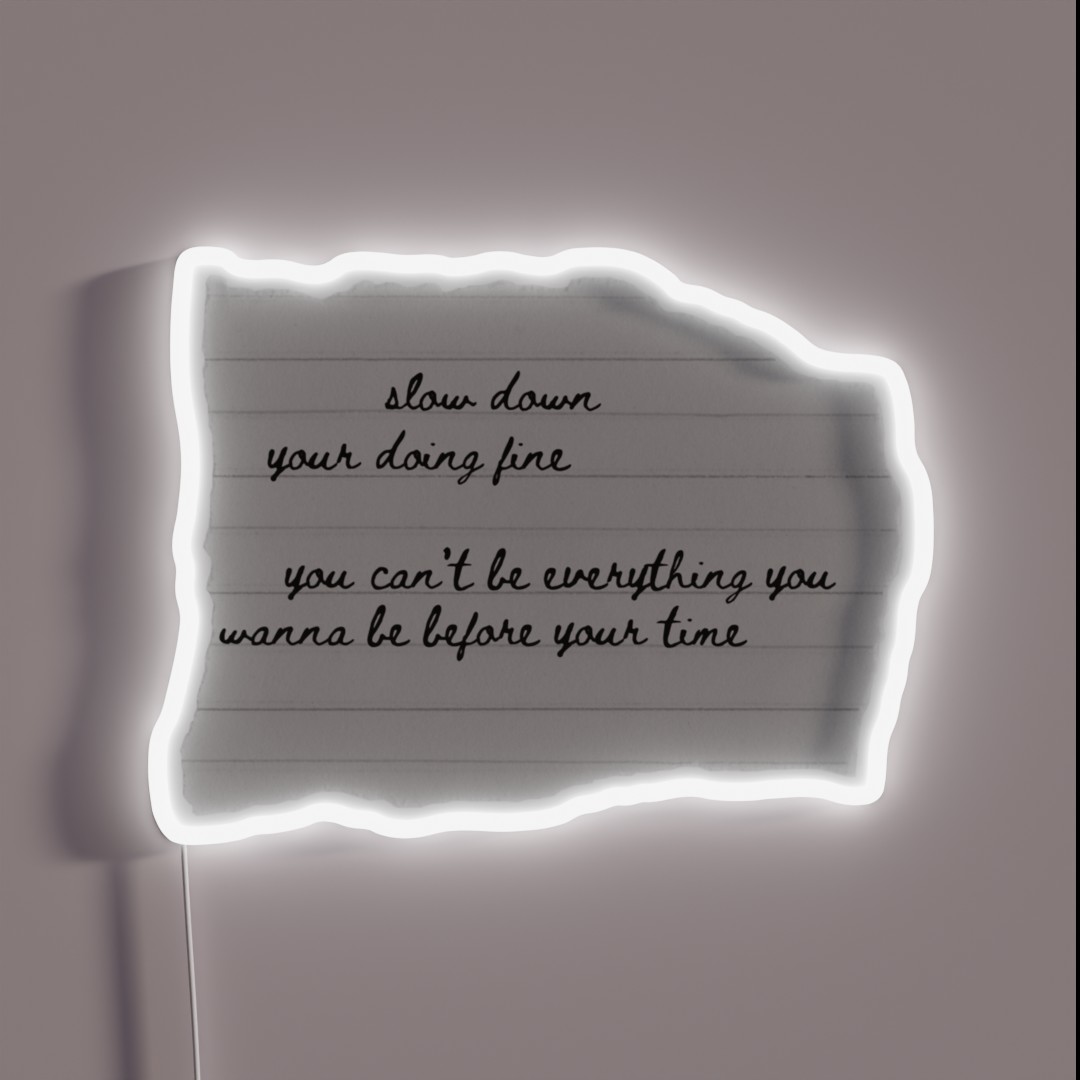 slow down
your doing fine
you can't be everything you
wanna be before your time